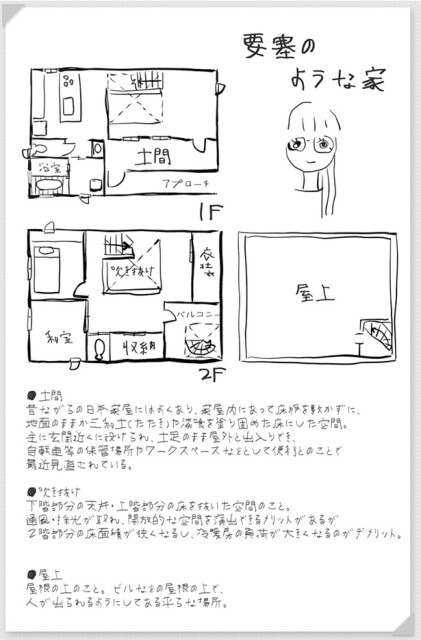 要塞の
ような家
浴室
土間
アプローチ
1F
吹き抜け
衣装
屋上
バルコニー
和室
収納
2F
●土間
昔ながらの日本家屋にはよくあり、家屋内にあって床板を敷かずに、
地面のままか三和土(たたき)や漆喰を塗り固めた床にした空間。
主に玄関近くに設けられ、土足のまま屋外と出入りでき、
自転車等の保管場所やワークスペースなどとして便利とのことで
最近見直されている。
●吹き抜け
下階部分の天井・上階部分の床を抜いた空間のこと。
通風・採光が取れ、開放的な空間を演出できるメリットがあるが
2階部分の床面積が狭くなるし、冷暖房の負荷が大きくなるのがデメリット。
●屋上
屋根の上のこと。ビルなどの屋根の上で、
人が出られるようにしてある平らな場所。